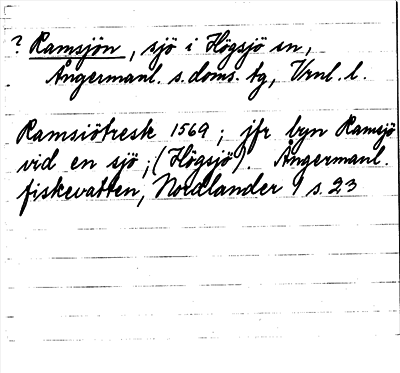 ? Ramsjön, sjö i Högsjö sn,
Ångermanl. s. doms. tg, Vrnl. l.
Ramsiötresk 1569; jfr byn Ramsjö
vid en sjö; (Högsjö). Ångermanl.
fiskevatten, Nordlander 1 s. 23